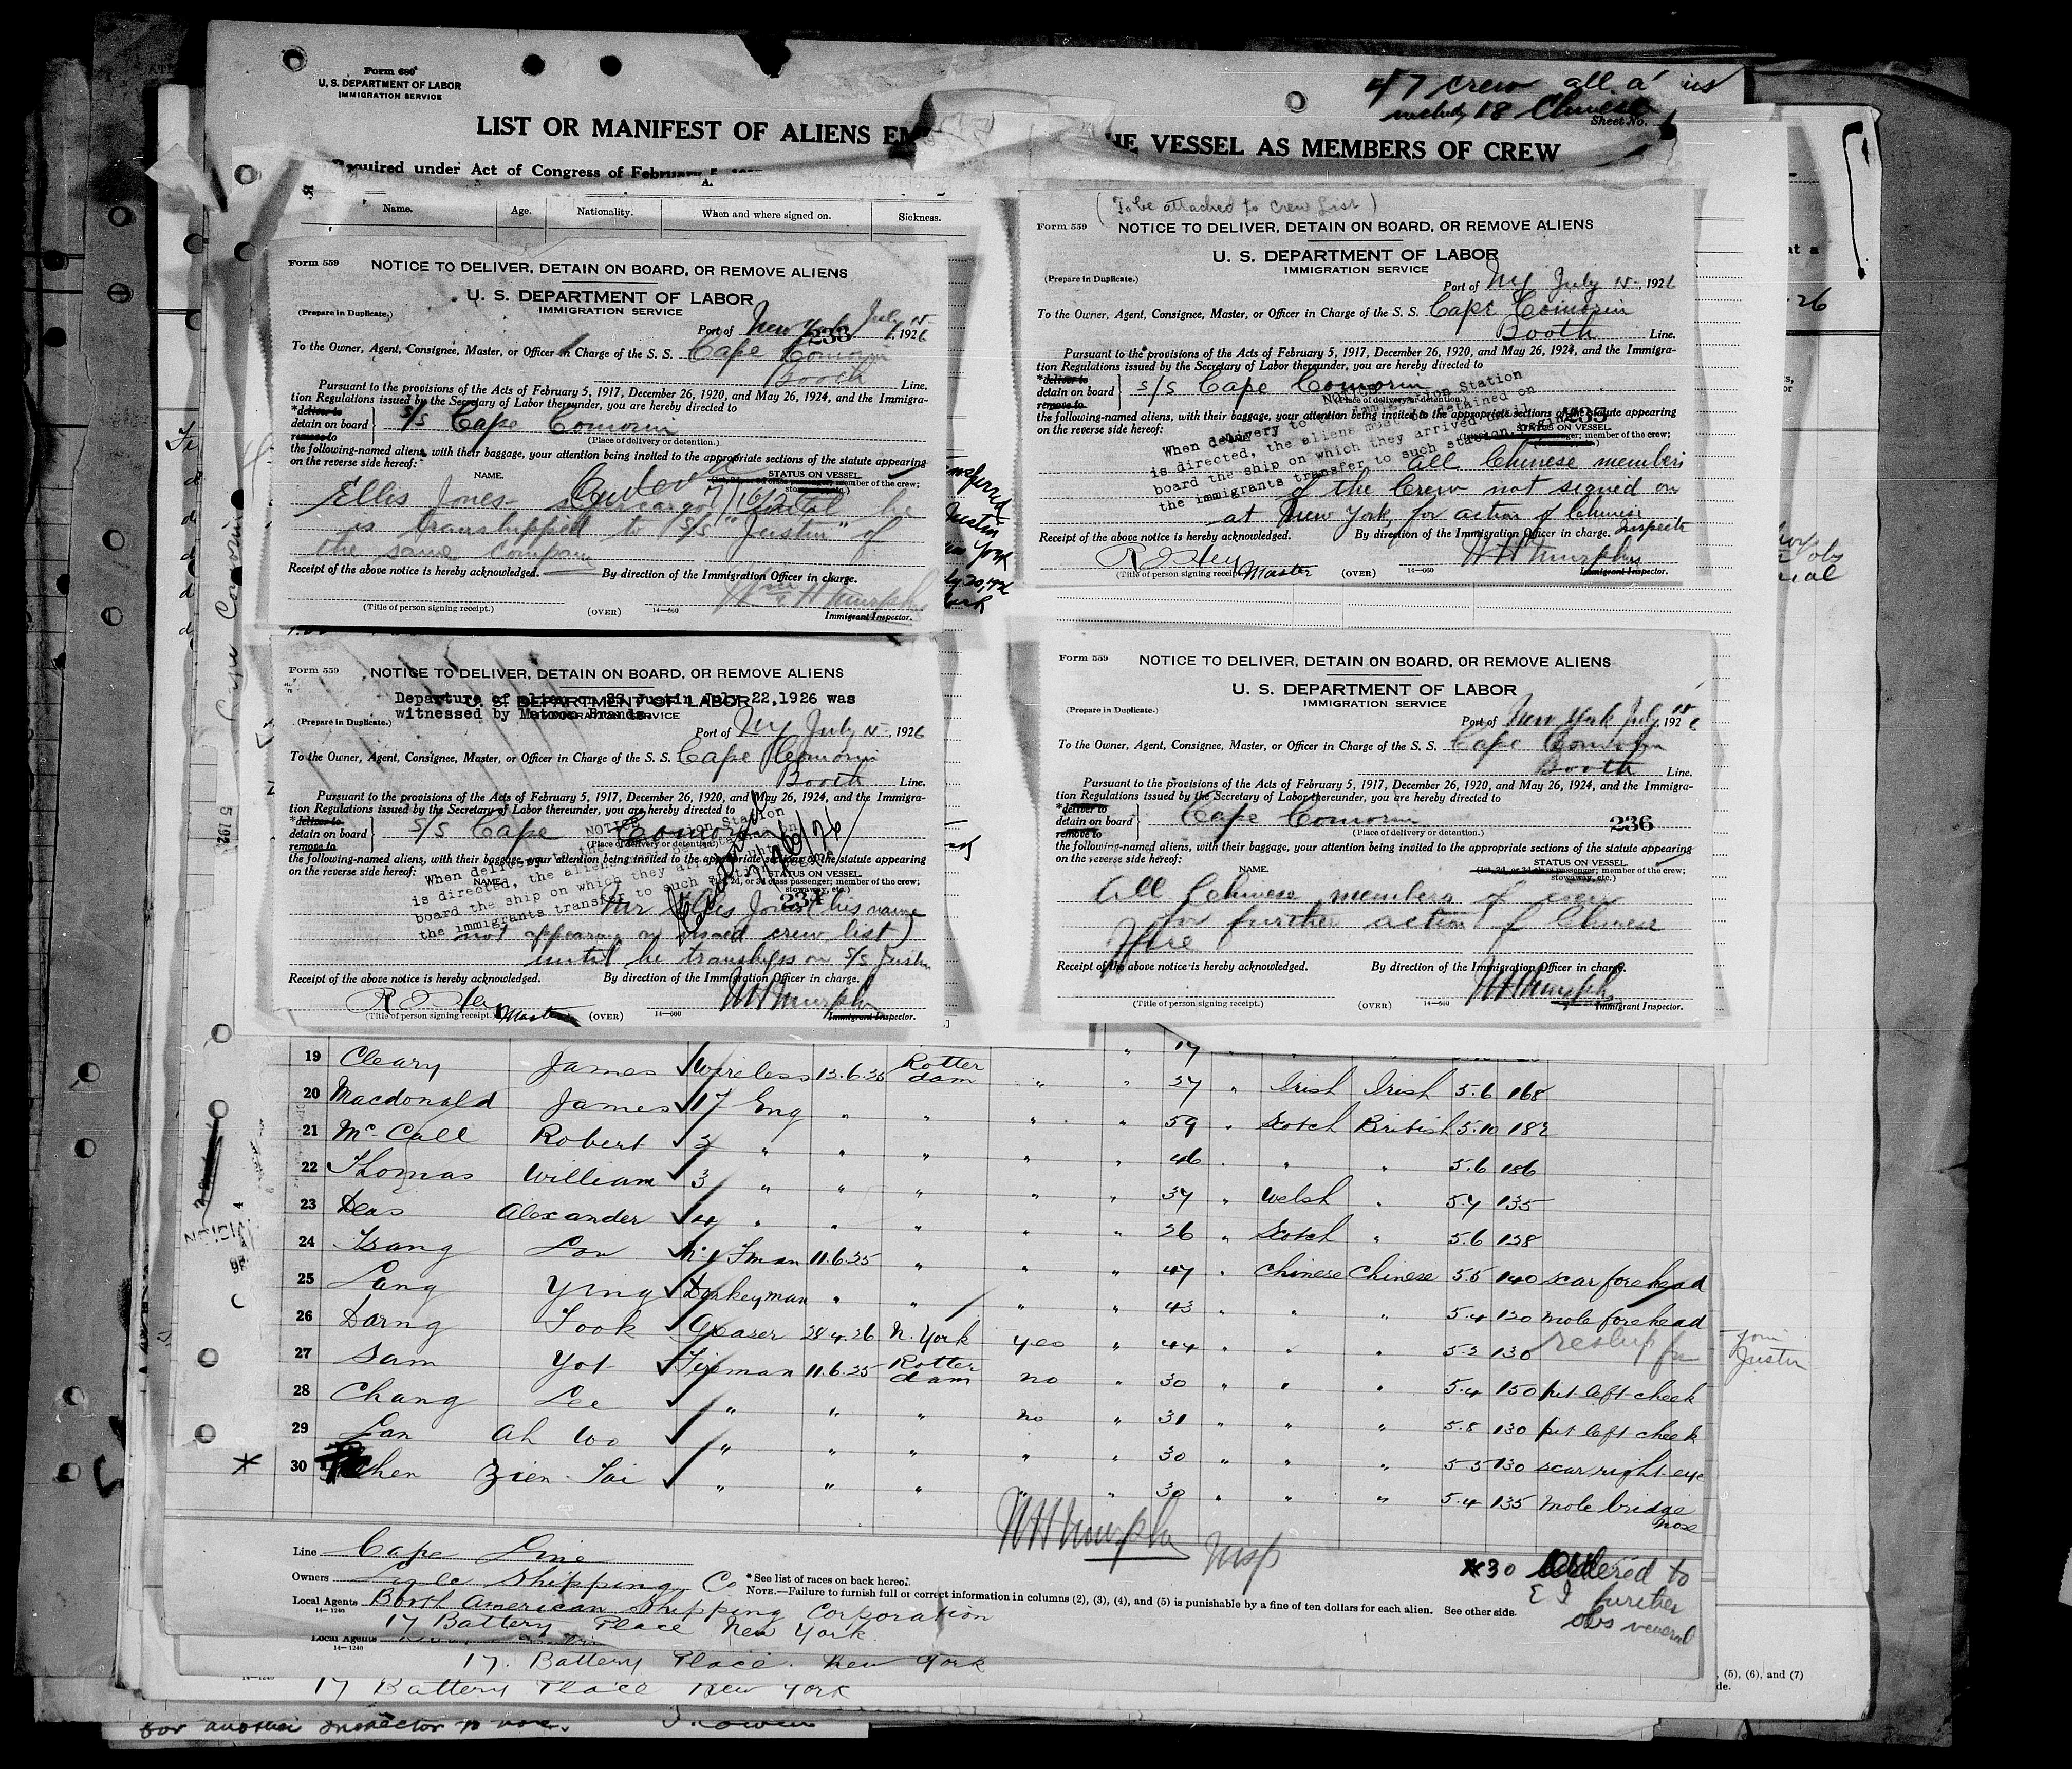 Form 680
U. S. DEPARTMENT OF LABOR
IMMIGRATION SERVICE
47 crew all a
18 Chinese
Sheet No.
LIST OR MANIFEST OF ALIENS EM HE VESSEL AS MEMBERS OF CREW
Required under Act of Congress of February 5,
Name. Age. Nationality. When and where signed on. Sickness.
Form 559
NOTICE TO DELIVER, DETAIN ON BOARD, OR REMOVE ALIENS
U. S. DEPARTMENT OF LABOR
IMMIGRATION SERVICE
(Prepare in Duplicate.)
Port of New York July 15, 1926
233
To the Owner, Agent, Consignee, Master, or Officer in Charge of the S. S. Cape Comorin
Booth Line.
Pursuant to the provisions of the Acts of February 5, 1917, December 26, 1920, and May 26, 1924, and the Immigra-
tion Regulations issued by the Secretary of Labor thereunder, you are hereby directed to
*deliver to
detain on board S/S Cape Comorin
remove to (Place of delivery or detention.)
the following-named aliens, with their baggage, your attention being invited to the appropriate sections of the statute appearing
on the reverse side hereof:
NAME. STATUS ON VESSEL
(1st, 2d, or 3d class passenger; member of the crew; stowaway, etc.)
Ellis Jones - supercargo until he
is transhipped to S/S "Justin" of
the same company
Receipt of the above notice is hereby acknowledged. By direction of the Immigration Officer in charge.
Wm H Murphy
(Title of person signing receipt.) (OVER) 14—660 Immigrant Inspector.
(To be attached to Crew List)
Form 559
NOTICE TO DELIVER, DETAIN ON BOARD, OR REMOVE ALIENS
U. S. DEPARTMENT OF LABOR
IMMIGRATION SERVICE
(Prepare in Duplicate.)
Port of NY July 15, 1926
To the Owner, Agent, Consignee, Master, or Officer in Charge of the S. S. Cape Comorin
Booth Line.
Pursuant to the provisions of the Acts of February 5, 1917, December 26, 1920, and May 26, 1924, and the Immigra-
tion Regulations issued by the Secretary of Labor thereunder, you are hereby directed to
*deliver to
detain on board S/S Cape Comorin
remove to (Place of delivery or detention.)
the following-named aliens, with their baggage, your attention being invited to the appropriate sections of the statute appearing
on the reverse side hereof:
235
STATUS ON VESSEL
NOTICE
When delivery to the Immigration Station
is directed, the aliens must be detained on
board the ship on which they arrived until
the immigrants transfer to such station begins
All Chinese members
of the Crew not signed on
at New York, for action of Chinese
Inspector
Receipt of the above notice is hereby acknowledged. By direction of the Immigration Officer in charge.
W H Murphy
(Title of person signing receipt.) Master (OVER) 14—660 Immigrant Inspector.
Form 559
NOTICE TO DELIVER, DETAIN ON BOARD, OR REMOVE ALIENS
Departure of alien on SS Justin July 22, 1926 was
U. S. DEPARTMENT OF LABOR
witnessed by Matron Brands.
IMMIGRATION SERVICE
(Prepare in Duplicate.)
Port of NY July 15, 1926
To the Owner, Agent, Consignee, Master, or Officer in Charge of the S. S. Cape Comorin
Booth Line.
Pursuant to the provisions of the Acts of February 5, 1917, December 26, 1920, and May 26, 1924, and the Immigra-
tion Regulations issued by the Secretary of Labor thereunder, you are hereby directed to
*deliver to
detain on board S/S Cape Comorin
remove to (Place of delivery or detention.)
the following-named aliens, with their baggage, your attention being invited to the appropriate sections of the statute appearing
on the reverse side hereof:
NAME. STATUS ON VESSEL
(1st, 2d, or 3d class passenger; member of the crew; stowaway, etc.)
7/16/26
234
Mr Ellis Jones (his name
not appearing on visaed crew list)
until he transhipps on S/S Justin
Receipt of the above notice is hereby acknowledged. By direction of the Immigration Officer in charge.
W H Murphy
(Title of person signing receipt.) Master (OVER) 14—660 Immigrant Inspector.
Form 559
NOTICE TO DELIVER, DETAIN ON BOARD, OR REMOVE ALIENS
U. S. DEPARTMENT OF LABOR
IMMIGRATION SERVICE
(Prepare in Duplicate.)
Port of New York July 15 1926
To the Owner, Agent, Consignee, Master, or Officer in Charge of the S. S. Cape Comorin
Booth Line.
Pursuant to the provisions of the Acts of February 5, 1917, December 26, 1920, and May 26, 1924, and the Immigra-
tion Regulations issued by the Secretary of Labor thereunder, you are hereby directed to
*deliver to
detain on board Cape Comorin 236
remove to (Place of delivery or detention.)
the following-named aliens, with their baggage, your attention being invited to the appropriate sections of the statute appearing
on the reverse side hereof:
NAME. STATUS ON VESSEL
(1st, 2d, or 3d class passenger; member of the crew; stowaway, etc.)
All Chinese members of crew
for further action of Chinese
Receipt of the above notice is hereby acknowledged. By direction of the Immigration Officer in charge.
W H Murphy
(Title of person signing receipt.) (OVER) 14—660 Immigrant Inspector.
19 Cleary James Wireless 12.6.25 Rotterdam " " 27 " Irish Irish 5.6 168
20 Macdonald James 1 Eng " " " " 59 " Scotch British 5.10 182
21 McCall Robert 2 " " " " " 46 " " " 5.6 186
22 Thomas William 3 " " " " " 37 " Welsh " 5.7 135
23 Deas Alexander 4 " " " " " 26 " Scotch " 5.6 138
24 Tsang Lou No 1 Fman 11.6.25 " " " 47 " Chinese Chinese 5.5 140 scar forehead
25 Lang Ying Donkeyman " " " " 43 " " " 5.4 120 mole forehead
26 Darng Took Greaser 28.4.26 N. York yes " 44 " " " 5.2 130
27 Sam Yot Fireman 11.6.25 Rotterdam no " 30 " " " 5.4 150 pit left cheek
28 Chang Lee " " " no " 31 " " " 5.8 130 pit left cheek
29 Lan Ah Wo " " " " " 30 " " " 5.5 130 scar right eye
30 Chen Zien Tai " " " " " 30 " " " 5.4 135 mole bridge nose
W H Murphy Insp
Line Cape Line
Owners Lyle Shipping Co
Local Agents Booth American Shipping Corporation
14—1240
17 Battery Place New York
*See list of races on back hereof.
NOTE.—Failure to furnish full or correct information in columns (2), (3), (4), and (5) is punishable by a fine of ten dollars for each alien. See other side.
*30 Ordered to
E I further
obs venereal
Local Agents
14—1240
17. Battery Place. New York
17 Battery Place New York
, (5), (6), and (7)
for another inspector to